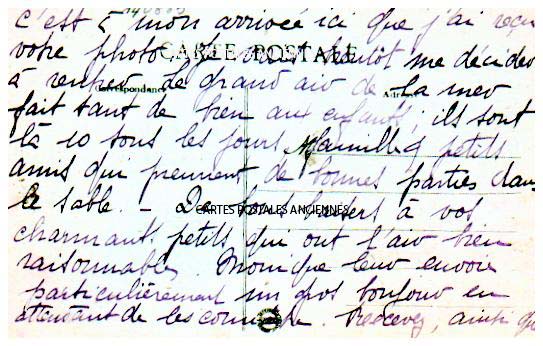 c'est à mon arrivée ici que j'ai reçu
votre photo. Je vais bientôt me décider
CARTE POSTALE
à rentrer. Le grand air de la mer
Correspondance
Adr
fait tant de bien aux enfants, ils sont
là 10 tous les jours, petits
amis qui prennent de bonnes parties dans
le sable. - De baisers à vos
CARTES POSTALES ANCIENNES
charmants petits qui ont l'air bien
raisonnables. Monique leur envoie
particulièrement un gros bonjour en
attendant de les connaître. Recevez, ainsi q